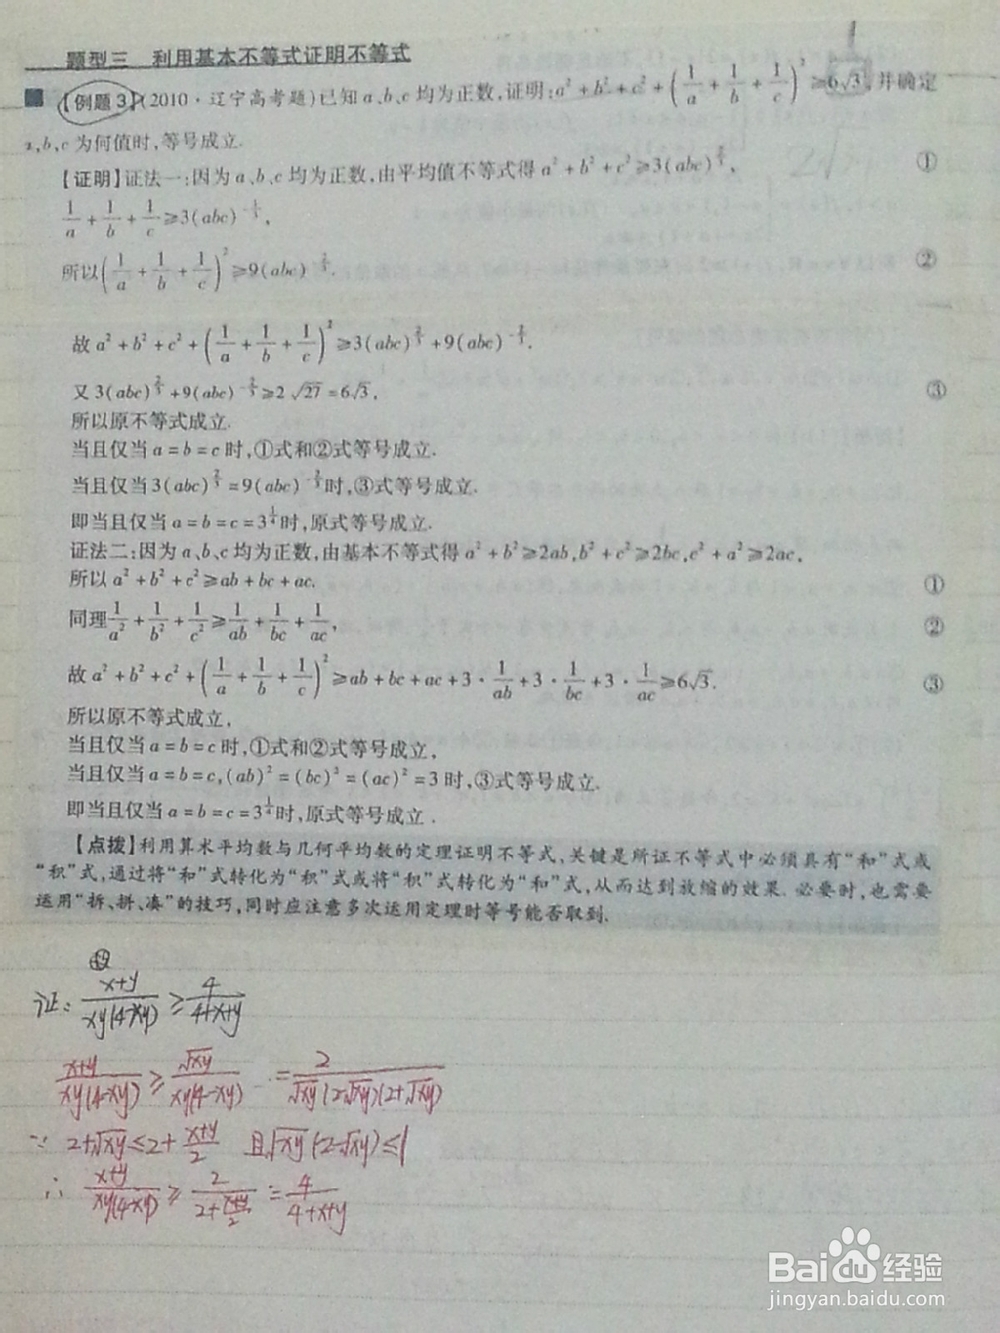 题型三 利用基本不等式证明不等式
【例题3】(2010·辽宁高考题)已知a,b,c均为正数,证明:a²+b²+c²+(1/a+1/b+1/c)²≥6√3,并确定
a,b,c为何值时,等号成立.
【证明】证法一:因为a、b、c均为正数,由平均值不等式得a²+b²+c²≥3(abc)^(2/3), ①
1/a+1/b+1/c≥3(abc)^(-1/3),
所以(1/a+1/b+1/c)²≥9(abc)^(-2/3). ②
故a²+b²+c²+(1/a+1/b+1/c)²≥3(abc)^(2/3)+9(abc)^(-2/3).
又3(abc)^(2/3)+9(abc)^(-2/3)≥2√27=6√3, ③
所以原不等式成立.
当且仅当a=b=c时,①式和②式等号成立.
当且仅当3(abc)^(2/3)=9(abc)^(-2/3)时,③式等号成立.
即当且仅当a=b=c=3^(1/4)时,原式等号成立.
证法二:因为a、b、c均为正数,由基本不等式得a²+b²≥2ab,b²+c²≥2bc,c²+a²≥2ac,
所以a²+b²+c²≥ab+bc+ac. ①
同理1/a²+1/b²+1/c²≥1/ab+1/bc+1/ac, ②
故a²+b²+c²+(1/a+1/b+1/c)²≥ab+bc+ac+3·1/ab+3·1/bc+3·1/ac≥6√3. ③
所以原不等式成立,
当且仅当a=b=c时,①式和②式等号成立,
当且仅当a=b=c,(ab)²=(bc)²=(ac)²=3时,③式等号成立.
即当且仅当a=b=c=3^(1/4)时,原式等号成立.
【点拨】利用算术平均数与几何平均数的定理证明不等式,关键是所证不等式中必须具有“和”式或
“积”式,通过将“和”式转化为“积”式或将“积”式转化为“和”式,从而达到放缩的效果.必要时,也需要
运用“拆、拼、凑”的技巧,同时应注意多次运用定理时等号能否取到.
证: (x+y)/(xy(4-xy)) ≥ 4/(4+x+y)
(x+y)/(xy(4-xy)) ≥ √xy/(xy(4-xy)) = 2/(√xy(2-√xy)(2+√xy))
∵ 2+√xy≤2+(x+y)/2 且√xy(2-√xy)≤1
∴ (x+y)/(xy(4-xy)) ≥ 2/(2+(x+y)/2) = 4/(4+x+y)
Baidu经验
jingyan.baidu.com